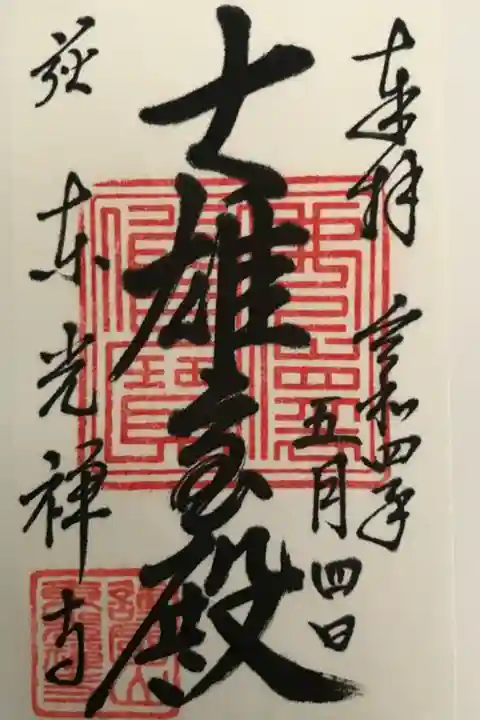 奉拝 令和四年
五月四日
大雄宝殿
萩 東光禅寺